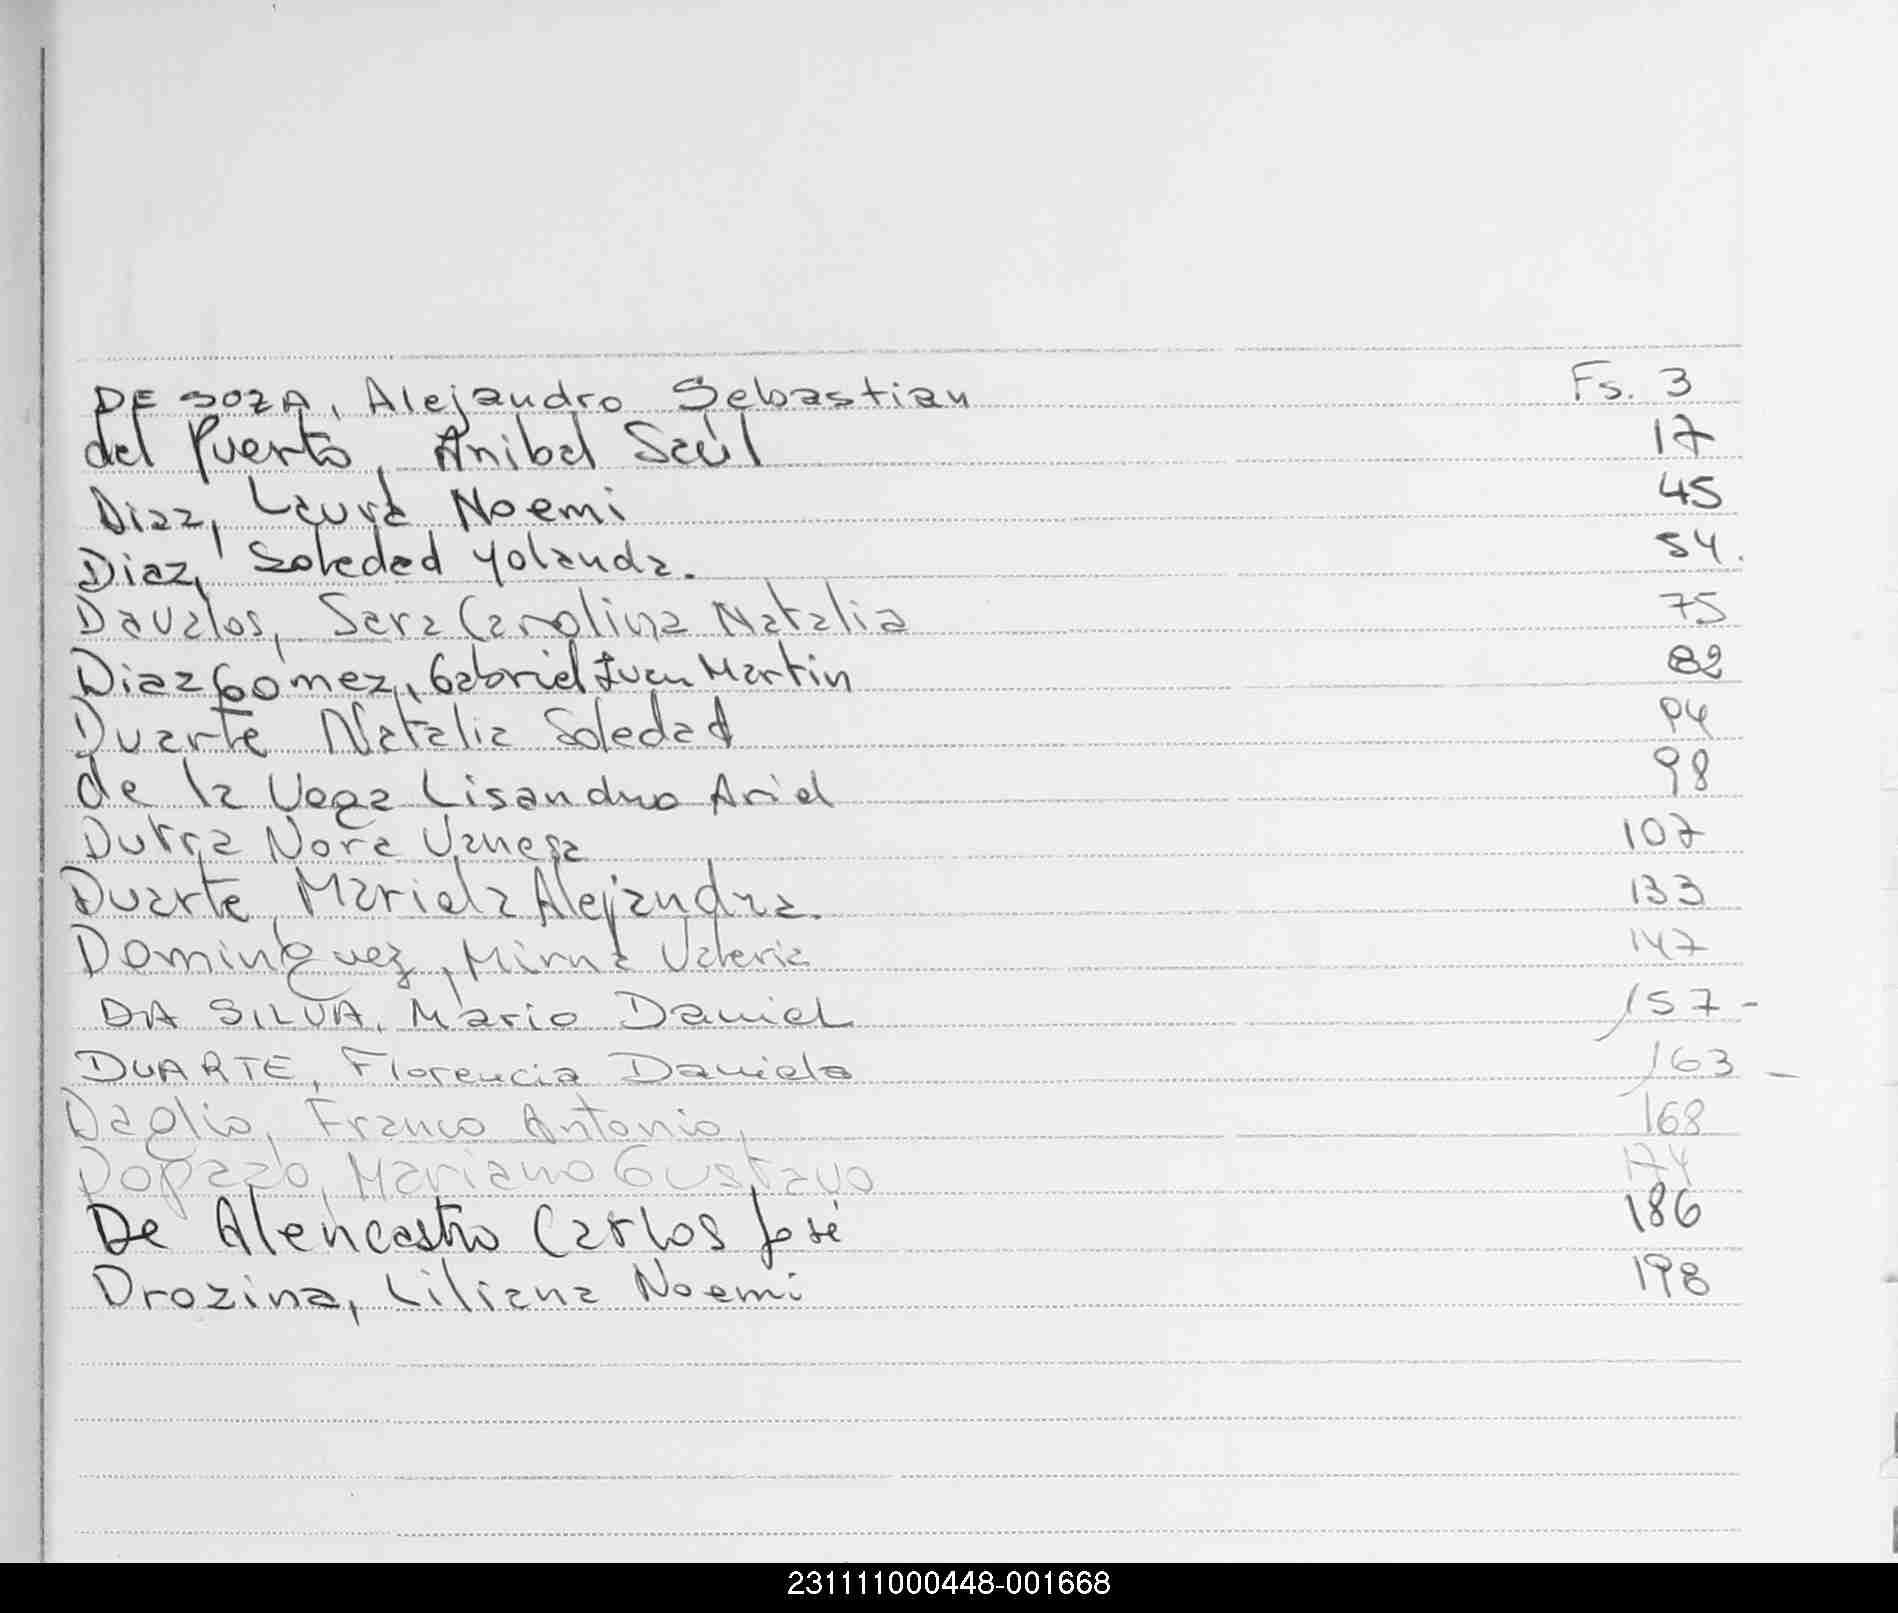 DE SOZA, Alejandro Sebastian Fs. 3
del Puerto, Anibal Saúl 17
Diaz, Laura Noemi 45
Diaz, Soledad Yolanda. 54.
Davalos, Sara Carolina Natalia 75
Diaz Gómez, Gabriel Ivan Martin 82
Duarte Natalia Soledad 94
de la Vega Lisandro Ariel 98
Dutra Nora Vanesa 107
Duarte, Mariela Alejandra. 133
Dominguez, Mirna Valeria 147
DA SILVA, Mario Daniel 157-
DUARTE, Florencia Daniela 163-
Daglio, Franco Antonio, 168
Dopazo, Mariano Gustavo 174
De Alencastro Carlos José 186
Drozina, Liliana Noemi 198
231111000448-001668